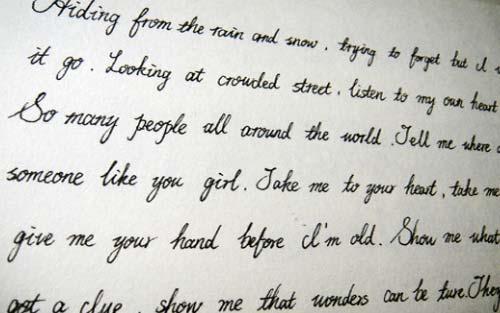 Hiding from the rain and snow. trying to forget but I
it go. Looking at crowded street, listen to my own heart
So many people all around the world. Tell me where
someone like you girl. Take me to your heart, take me
give me your hand before I'm old. Show me what
got a clue, show me that wonders can be ture. They